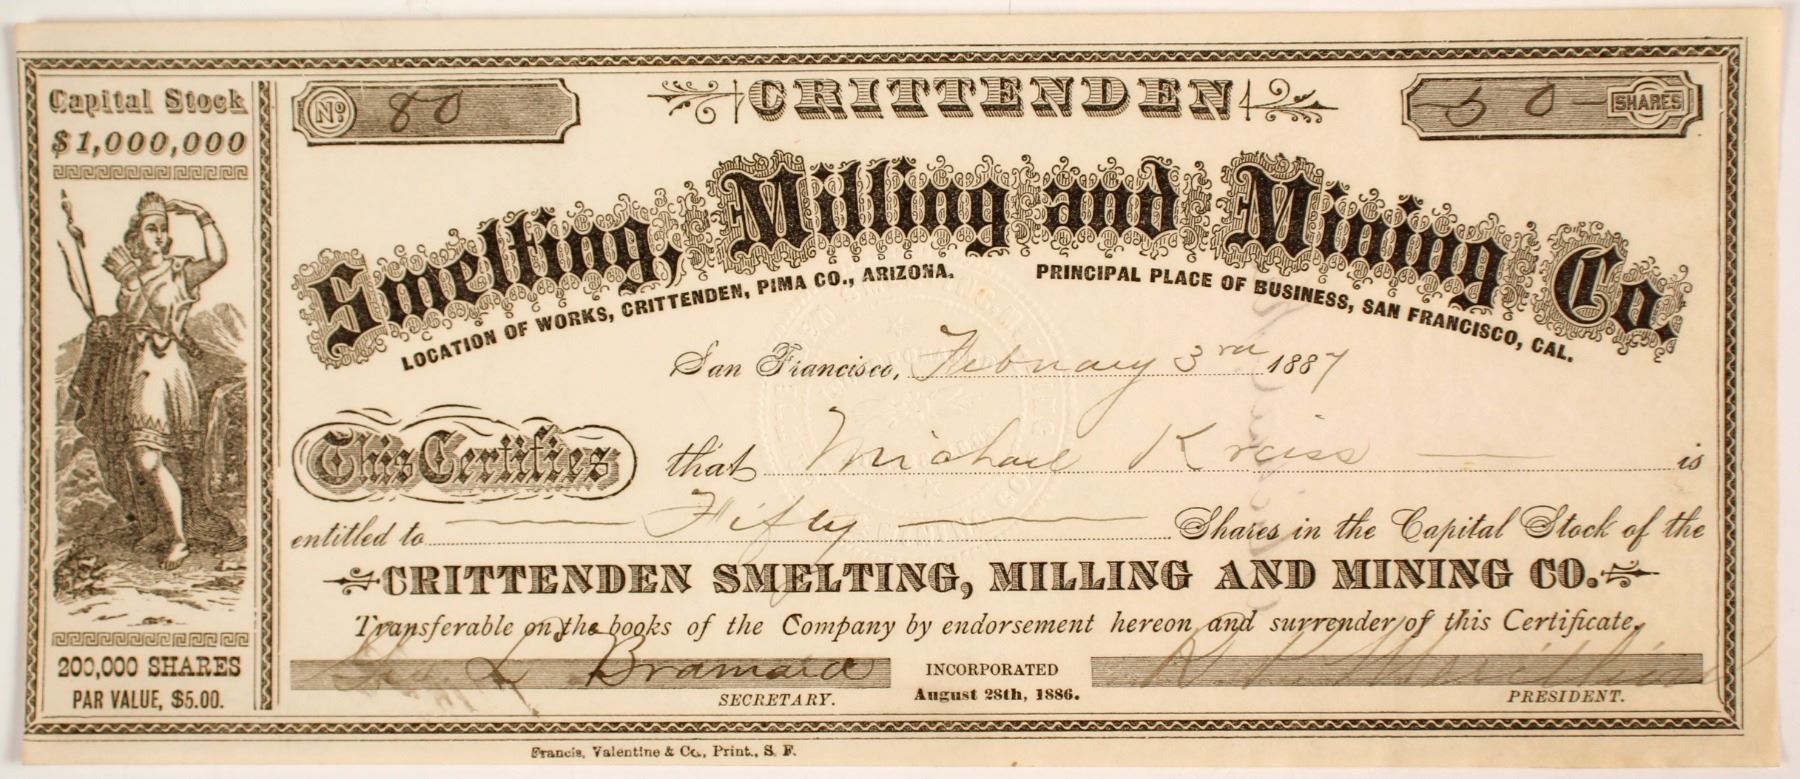 Capital Stock
$1,000,000
200,000 SHARES
PAR VALUE, $5.00.
No. 80
CRITTENDEN
50 SHARES
Smelting, Milling and Mining Co.
LOCATION OF WORKS, CRITTENDEN, PIMA CO., ARIZONA.
PRINCIPAL PLACE OF BUSINESS, SAN FRANCISCO, CAL.
San Francisco, February 3rd 1887
This Certifies that Michael Kreiss is
entitled to Fifty Shares in the Capital Stock of the
CRITTENDEN SMELTING, MILLING AND MINING CO.
Transferable on the books of the Company by endorsement hereon and surrender of this Certificate.
Geo. L.
SECRETARY.
INCORPORATED
August 28th, 1886.
PRESIDENT.
Francis, Valentine & Co., Print., S. F.